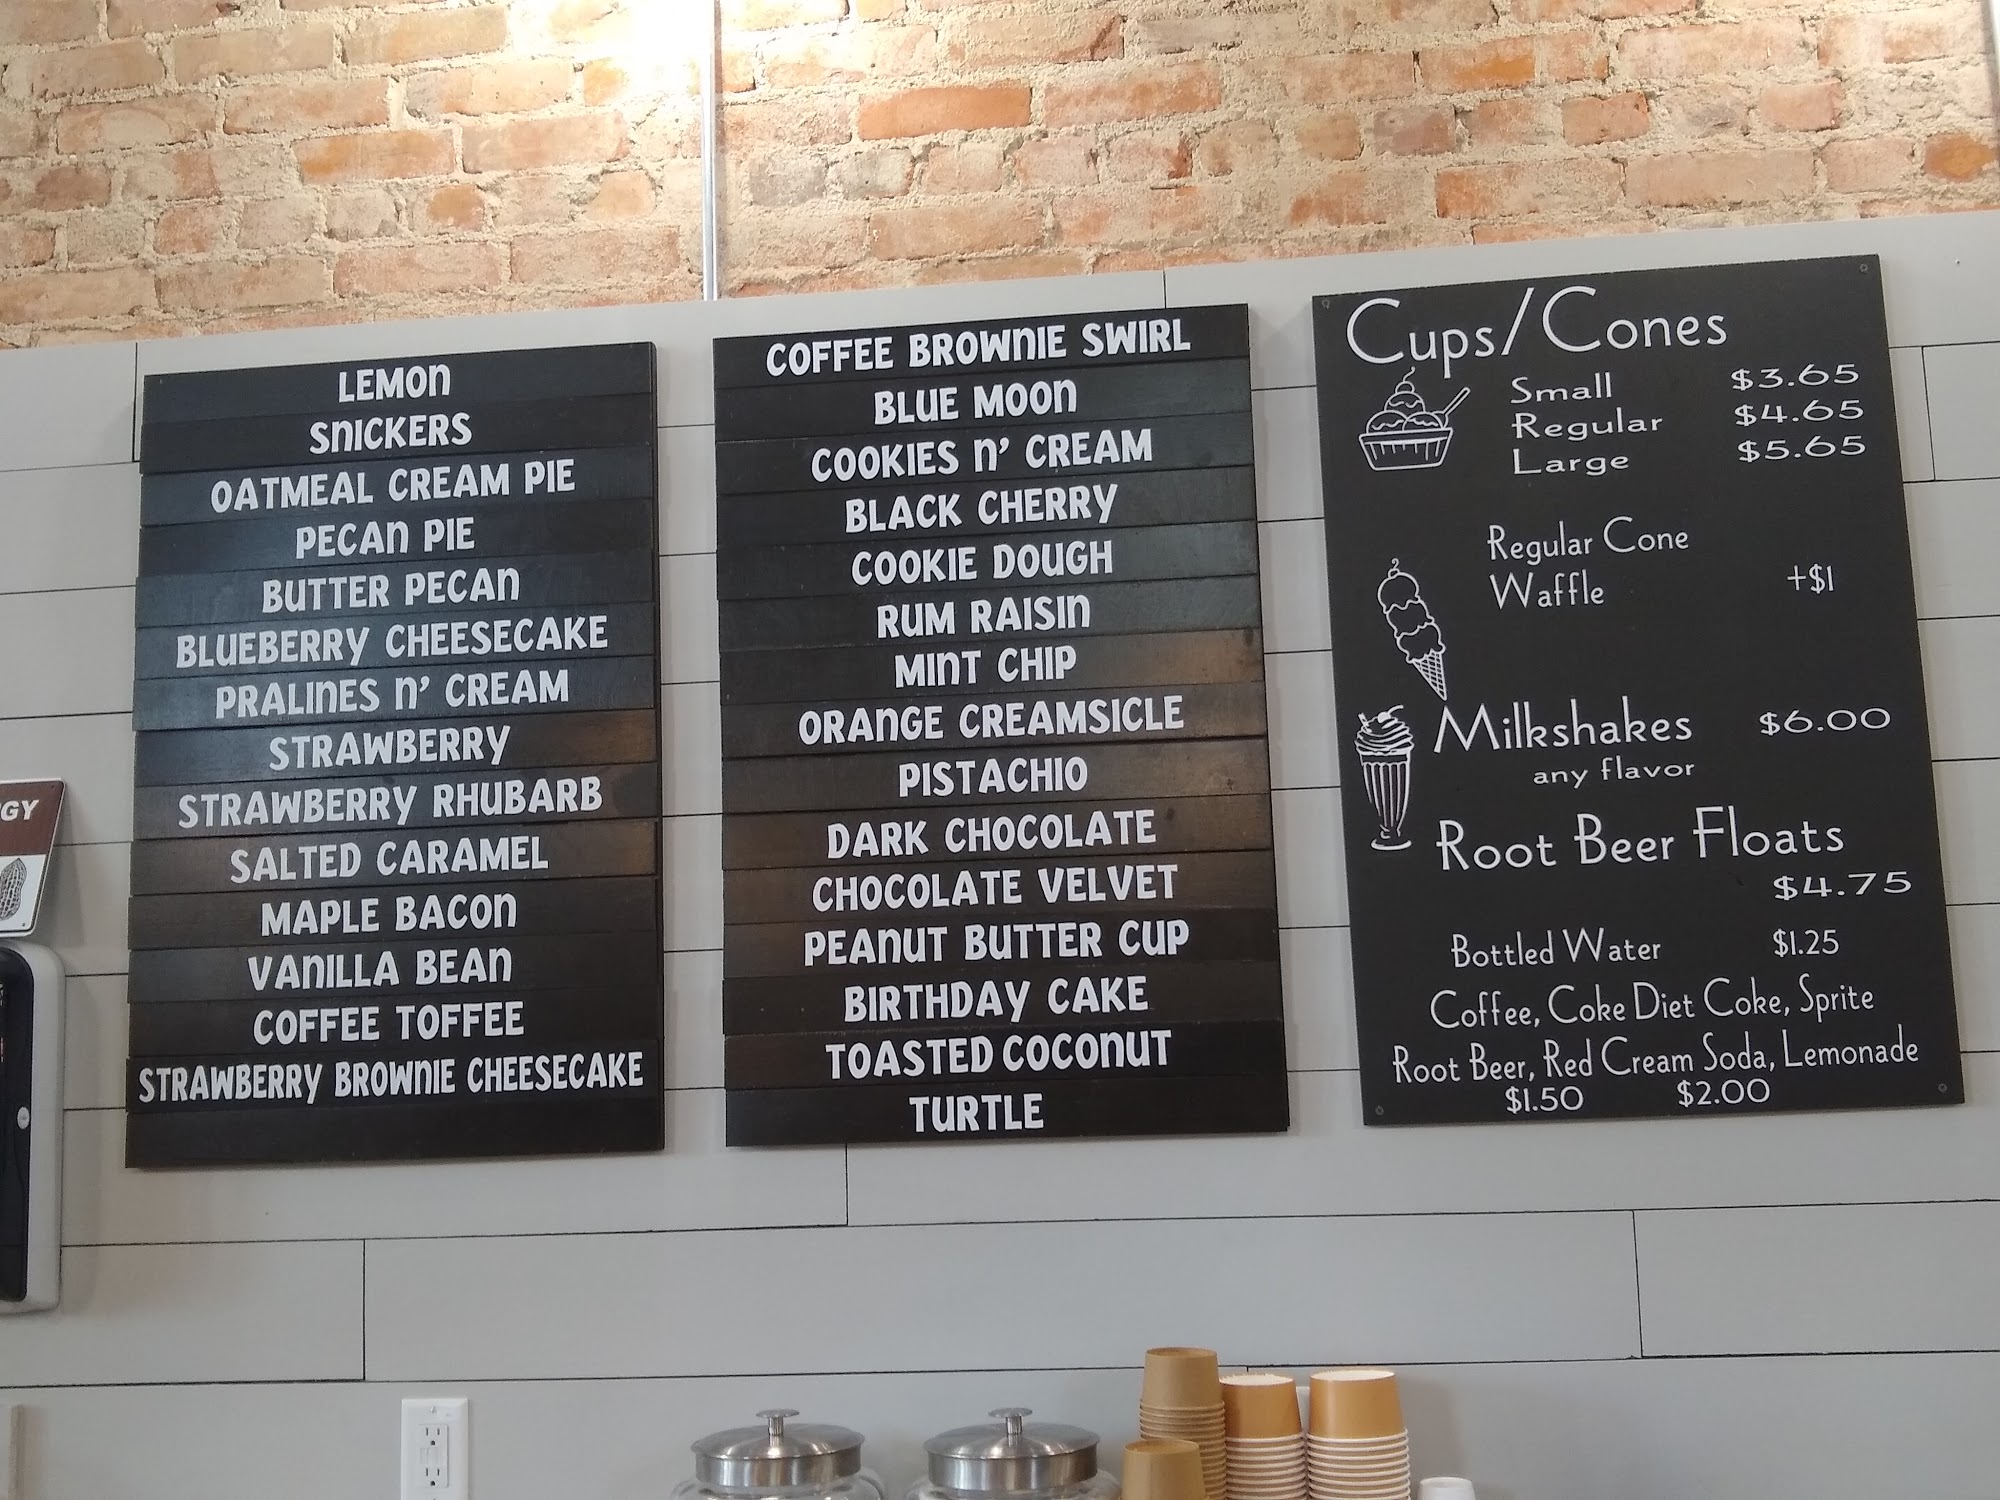 LEMON
SNICKERS
OATMEAL CREAM PIE
PECAN PIE
BUTTER PECAN
BLUEBERRY CHEESECAKE
PRALINES N' CREAM
STRAWBERRY
STRAWBERRY RHUBARB
SALTED CARAMEL
MAPLE BACON
VANILLA BEAN
COFFEE TOFFEE
STRAWBERRY BROWNIE CHEESECAKE
COFFEE BROWNIE SWIRL
BLUE MOON
COOKIES N' CREAM
BLACK CHERRY
COOKIE DOUGH
RUM RAISIN
MINT CHIP
ORANGE CREAMSICLE
PISTACHIO
DARK CHOCOLATE
CHOCOLATE VELVET
PEANUT BUTTER CUP
BIRTHDAY CAKE
TOASTED COCONUT
TURTLE
Cups/Cones
Small $3.65
Regular $4.65
Large $5.65
Regular Cone
Waffle +$1
Milkshakes $6.00
any flavor
Root Beer Floats
$4.75
Bottled Water $1.25
Coffee, Coke Diet Coke, Sprite
Root Beer, Red Cream Soda, Lemonade
$1.50 $2.00